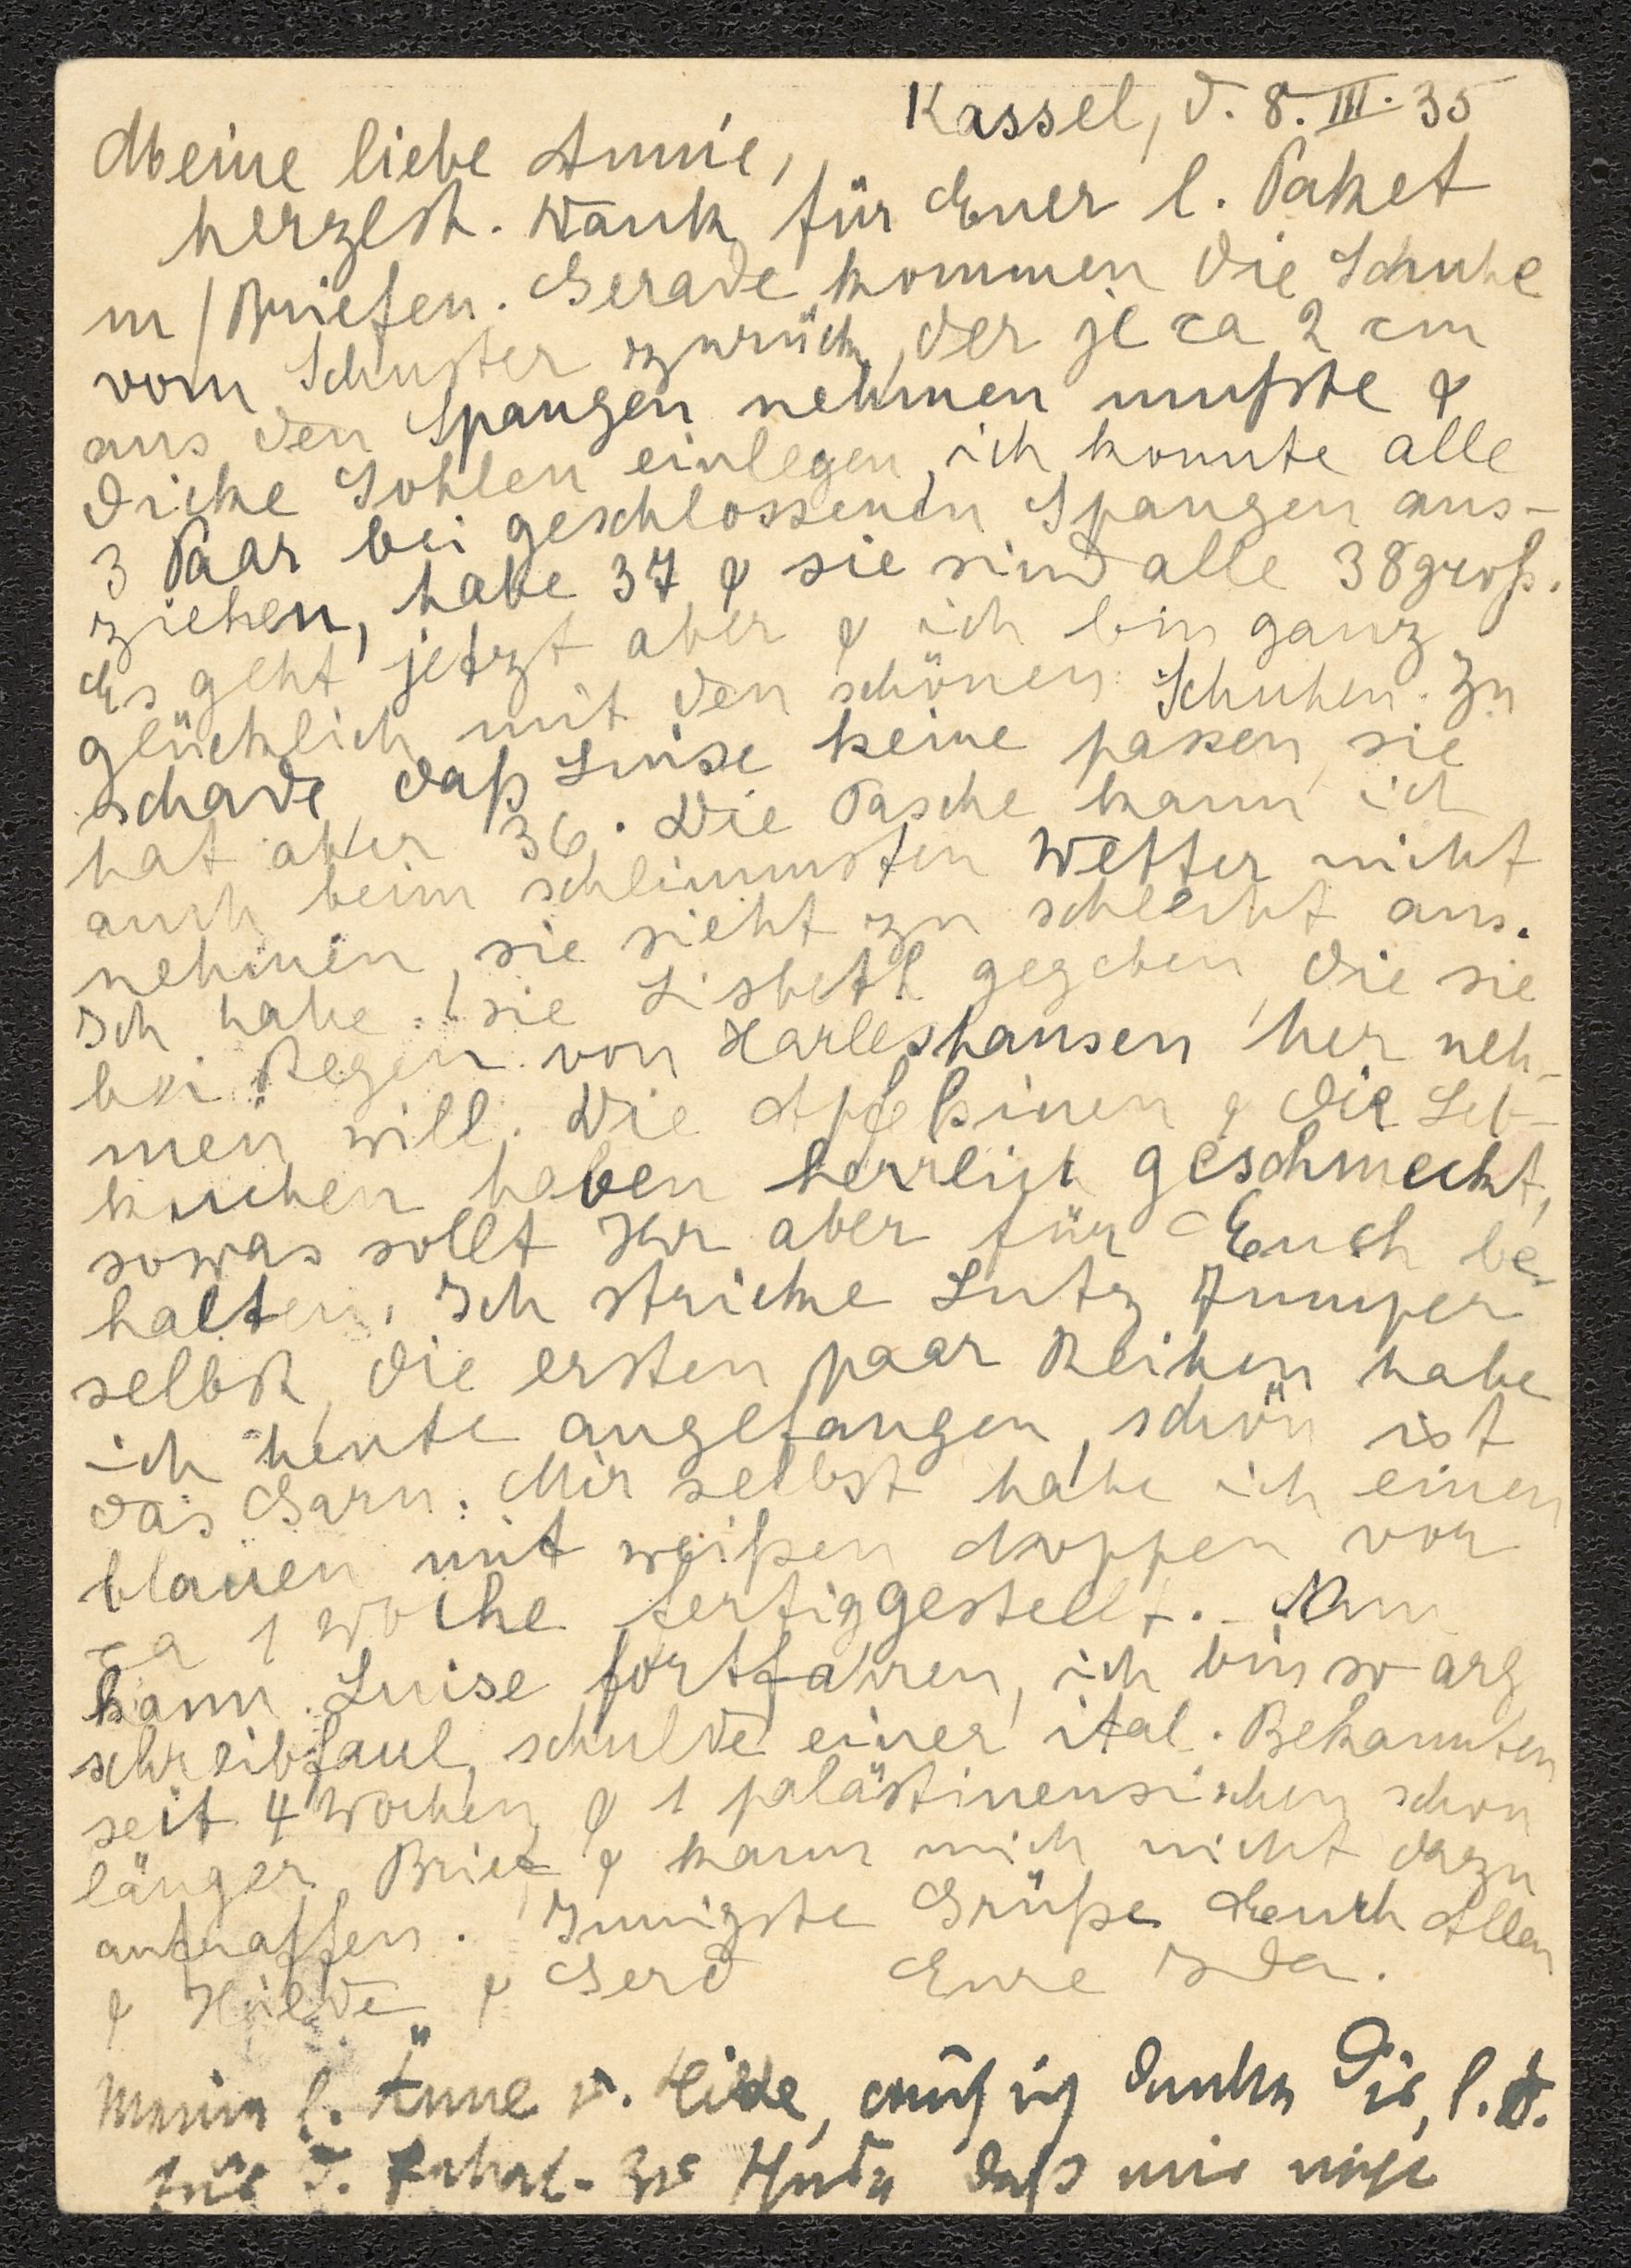 Kassel, d. 8. III. 35
Meine liebe Annie,
herzlch. Dank für Euer l. Paket
m/Briefen. Gerade kommen die Schuhe
vom Schuster zurück, der je ca 2 cm
aus den Spangen nehmen mußte &
dicke Sohlen einlegen, ich konnte alle
3 Paar bei geschlossenen Spangen aus-
ziehen, habe 37 & sie sind alle 38 groß.
Es geht jetzt aber & ich bin ganz
glücklich mit den schönen Schuhen. Zu
schade, daß Luise keine passen, sie
hat aber 36. Die Tasche kann ich
auch beim schlimmsten Wetter nicht
nehmen, sie sieht zu schlecht aus.
Ich habe sie Lisbeth gegeben, die sie
bei Regen von Harleshausen her neh-
men will. Die Apfelsinen & die Leb-
kuchen haben herrlich geschmeckt,
sowas sollt Ihr aber für Euch be-
halten. Ich stricke Lutz Jumper
selbst, die ersten paar Reihen habe
ich heute angefangen, schön ist
das Garn. Mir selbst habe ich einen
blauen mit weißen Noppen vor
ca 1 Woche fertiggestellt. Nun
kann Luise fortfahren, ich bin so arg
schreibfaul, schulde einer ital. Bekannten
seit 4 Wochen & 1 palästinensischen schon
länger Brief & kann mich nicht dazu
aufraffen. Innigste Grüße Euch Allen
& Hilde & Gerd Eure Ida.
Meine l. Änne u. Hilde, auch ich danke Dir, l. A.
für d. daß mir